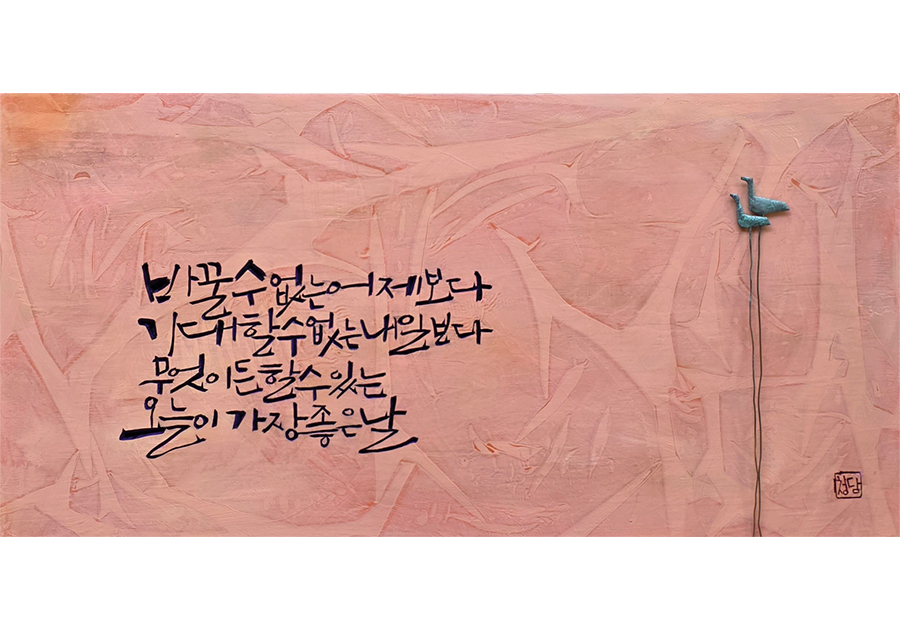 바꿀수없는어제보다
기대할수없는내일보다
무엇이든할수있는
오늘이가장좋은날
청담